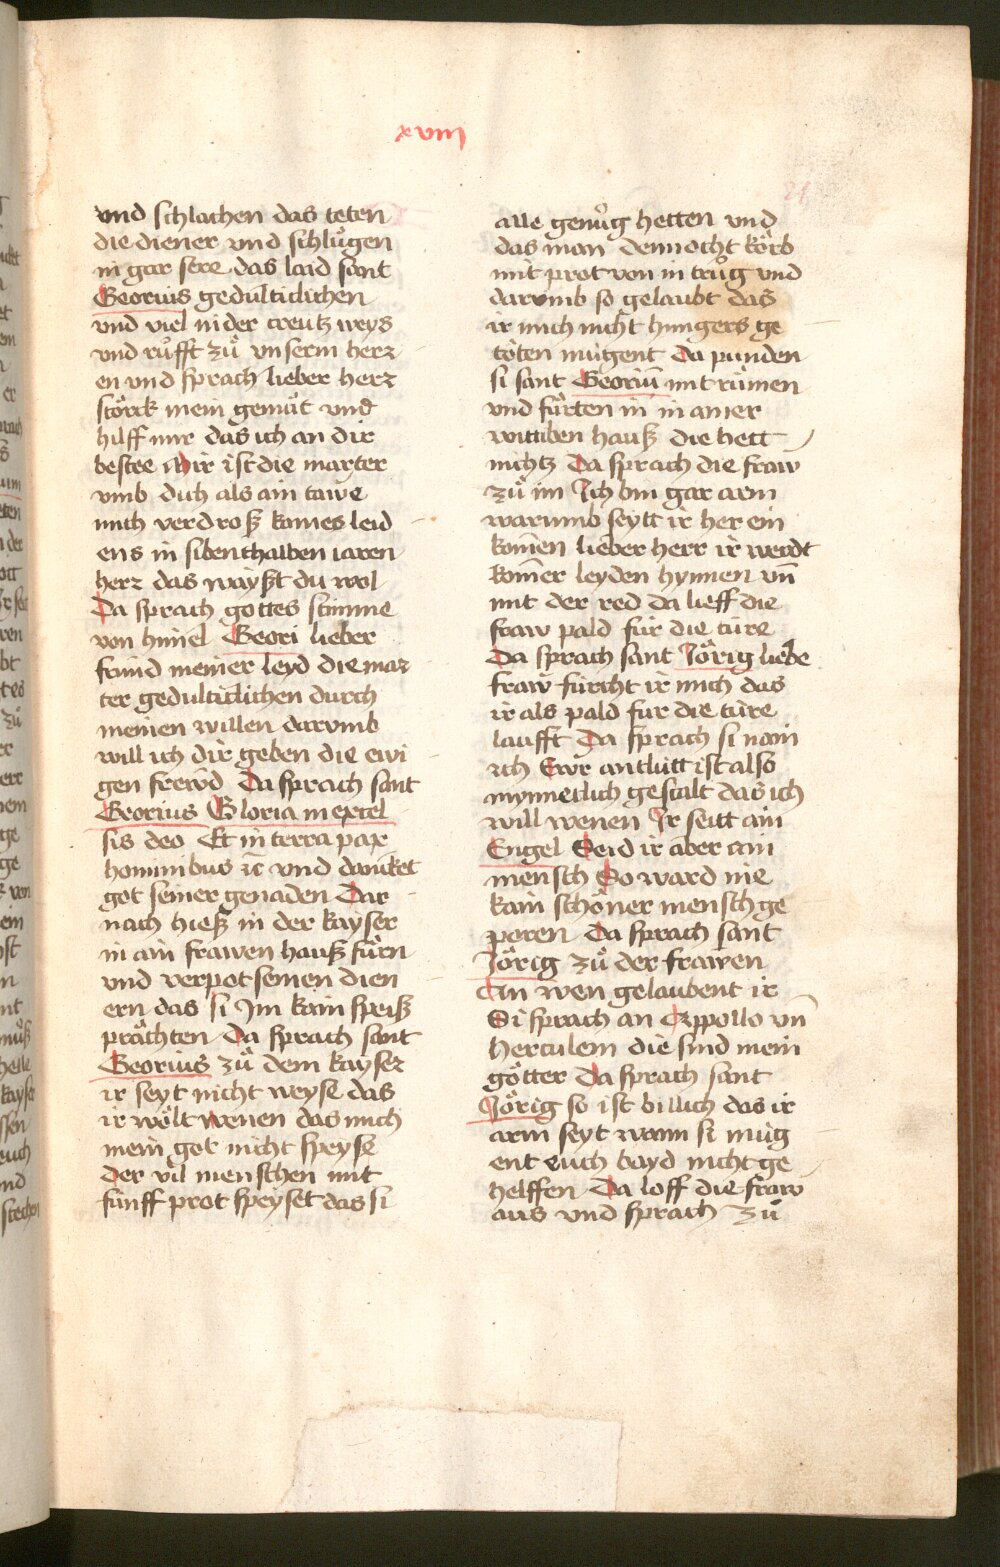 xviii
21
vnd schlachen das teten
die diener vnd schlůgen
in gar sere das laid sant
Georius gedulticlichen
vnd viel nider creutz weys
vnd růfft zů vnserm herr
en vnd sprach lieber herr
störck mein gemůt vnd
hilff mir das ich an dir
bestee Mir ist die marter
vmb dich als ain tawe
mich verdroß kaines leid
ens in sibenthalben iaren
herr das wayßt du wol
Da sprach gottes stimme
von himel Geori lieber
fraind meiner leyd die mar
ter gedulticlichen durch
meinen willen darvmb
will ich dir geben die ewi
gen frewd Da sprach sant
Georius Gloria in excel
sis deo Et in terra pax
hominibus ic̄ vnd dancket
got seiner genaden Dar
nach hieß in der kayser
in ain frawen hauß fůrn
vnd verpot seinen dien
ern das si Im kain speiß
prächten Da sprach sant
Georius zů dem kayser
ir seyt nicht weyse das
ir wölt wenen das mich
mein got nicht speyse
der vil menschen mit
fünff prot speyset das si
alle genůg hetten vnd
das man dennocht körb
mit prot von in trůg vnd
darvmb so gelaubt das
ir mich nicht hungers ge
töten mügent Da punden
si sant Georiū mit rümen
vnd fůrten in in ainer
wittiben hauß die hett
nichtz Da sprach die fraw
zů im Ich bin gar arm
warumb seytt ir her ein
kom̄en lieber herr ir werdt
kom̄er leyden hynnen vn̄
mit der red da lieff die
fraw pald für die türe
Da sprach sant Jörig liebe
fraw fürcht ir mich das
ir als pald für die türe
laufft Da sprach si nain
ich Ewr antlütt ist also
mynneclich gestalt das ich
will wenen Ir seitt ain
Engel Seid ir aber ain
mensch So ward nie
kain schöner mensch ge
poren Da sprach sant
Jörig zů der frawen
An wen gelaubent ir
Si sprach an Appollo vn̄
herculem die sind mein
götter Da sprach sant
Jörig so ist billich das ir
arm seyt wann si müg
ent euch bayd nicht ge
helffen Da loff die fraw
aus vnd sprach zů